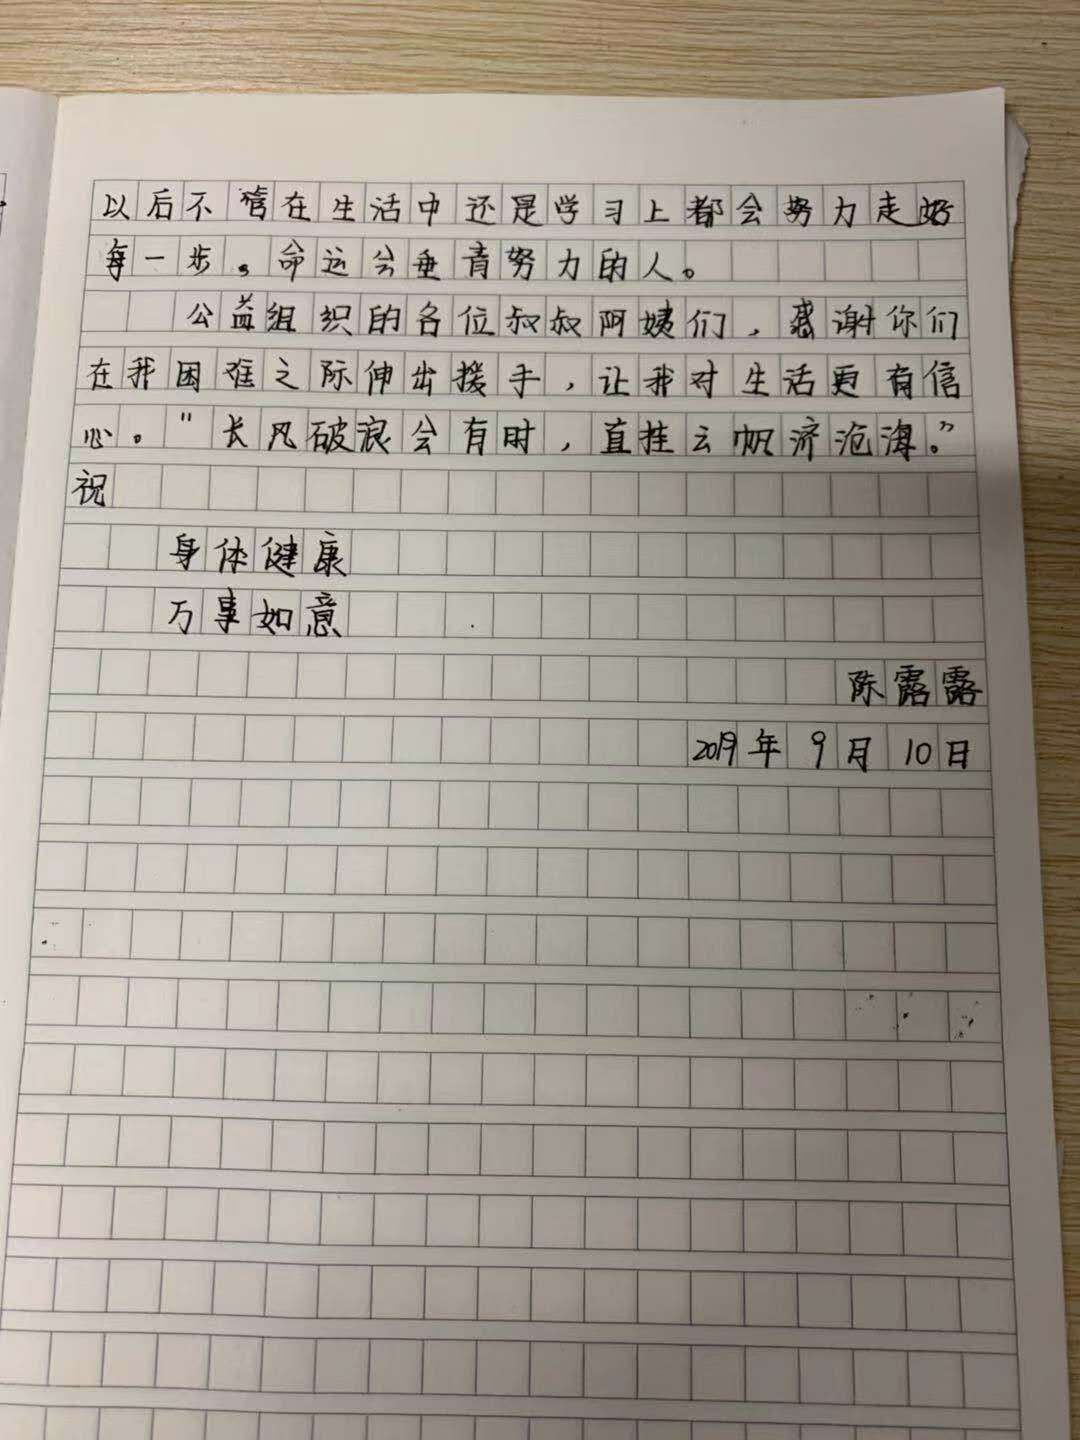 以后不管在生活中还是学习上都会努力走好
每一步。命运会垂青努力的人。
公益组织的各位叔叔阿姨们，感谢你们
在我困难之际伸出援手，让我对生活更有信
心。"长风破浪会有时，直挂云帆济沧海。"
祝
身体健康
万事如意
陈露露
2019年9月10日